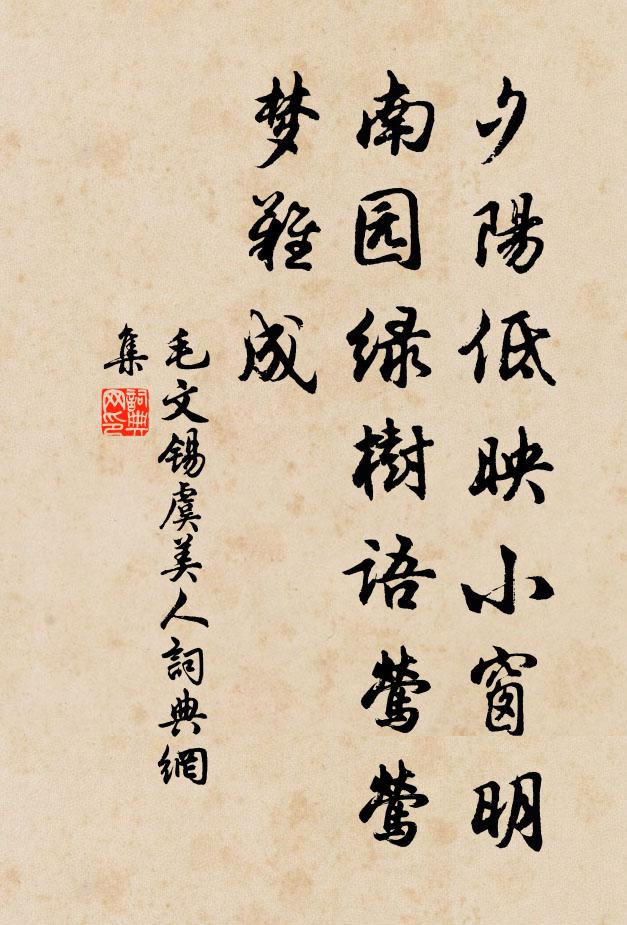 夕陽低映小窗明
南园緑樹語莺莺
梦難成
毛文锡虞美人詞典網
集
詞典
网印